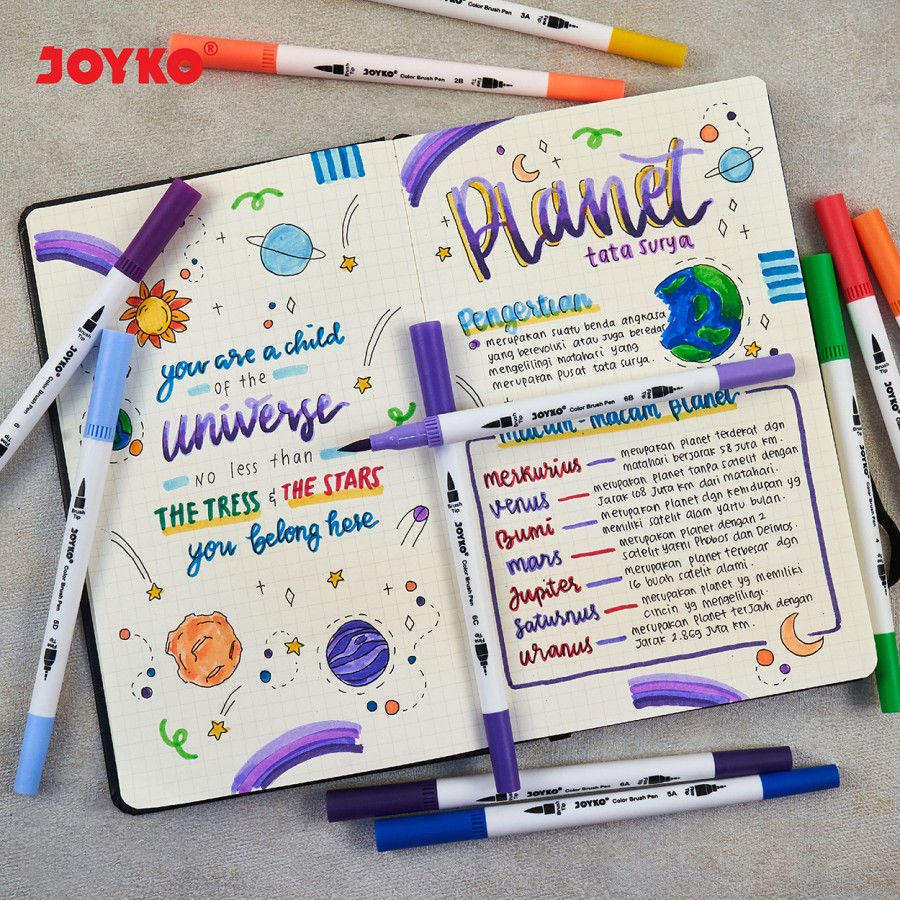 JOYKO®
Color Brush Pen 3A Fine Tip
Brush Tip JOYKO® Color Brush Pen 2B Fine Tip
you are a child
OF the
universe
NO less than
THE TRESS & THE STARS
you belong here
Planet
tata surya
Pengertian
merupakan suatu benda angkasa
yang berevolusi atau juga beredar
mengelilingi matahari yang
merupakan pusat tata surya.
Brush Tip JOYKO® Color Brush Pen 6B Fine Tip
macam-macam planet
merkurius — merupakan planet terdekat dgn
matahari berjarak 58 juta km.
venus — merupakan planet tanpa satelit dengan
jarak 108 juta km dari matahari.
Bumi — merupakan planet dgn kehidupan yg
memiliki satelit alam yaitu bulan.
mars — merupakan planet dengan 2
satelit yakni Phobos dan Deimos.
Jupiter — merupakan planet terbesar dgn
16 buah satelit alami.
saturnus — merupakan planet yg memiliki
cincin yg mengelilingi.
uranus — merupakan planet terjauh dengan
jarak 2.869 juta km.
Brush Tip JOYKO® 6 Fine Tip
Brush Tip JOYKO® Color Brush Pen 5D Fine Tip
Brush Tip JOYKO® Color Brush Pen 6C Fine Tip
JOYKO® Color Brush Pen 6A Fine Tip
Brush Tip JOYKO® Color Brush Pen 5A Fine Tip
Brush Tip
Brush Tip